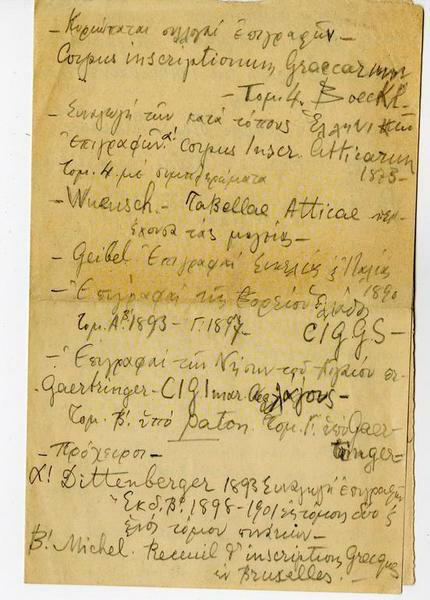 – Κυριώταται συλλογαί Ἐπιγραφῶν –
Corpus inscriptionum Graecarum
– Τομ. 4. Boeckh.
– Συναγωγή τῶν κατά τόπους Ἑλληνικῶν
Ἐπιγραφῶν. α! Corpus Inscr. Atticarum
τομ. 4 μέ συμπληρώματα 1873 –
– Wuensch. – Tabellae Atticae περι-
έχουσα τάς μαγείας –
– Geibel Ἐπιγραφαί Σικελίας & Ἰταλίας
1890
– Ἐπιγραφαί τῆς Βορείου Ἑλλάδος
τομ. Α! 1893 – Γ. 1897. CIGGS –
– Ἐπιγραφαί τῶν Νήσων τοῦ Αἰγαίου
Gaertringer – CIGI mar. πελάγους –
Τομ. Β! ὑπό paton. Τομ. Γ! ὑπό Gaer-
tringer –
– Πρόχειροι –
α! Dittenberger 1893 Συναγωγή ἐπιγραφῶν
Ἔκδ. Β! 1898 – 1901 εἰς τόμους δύο &
ἑνός τόμου πινάκων –
Β! Michel. Recueil d'inscriptions Grecques
ἐν Bruxelles. –